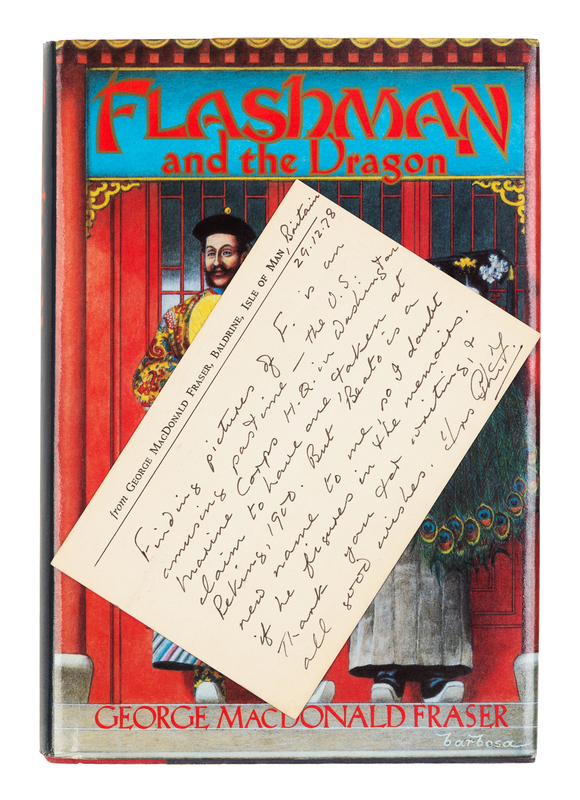 FLASHMAN
and the Dragon
from GEORGE MACDONALD FRASER, BALDRINE, ISLE OF MAN Britain
29.12.78
Finding pictures of F. is an
amusing pastime — the U.S.
Marine Corps H.Q. in Washington
claim to have one taken at
Peking, 1900. But 'Beato' is a
new name to me, so I doubt
if he figures in the memoirs.
Thank you for writing, &
all good wishes. Yrs
GEORGE MACDONALD FRASER
barbosa